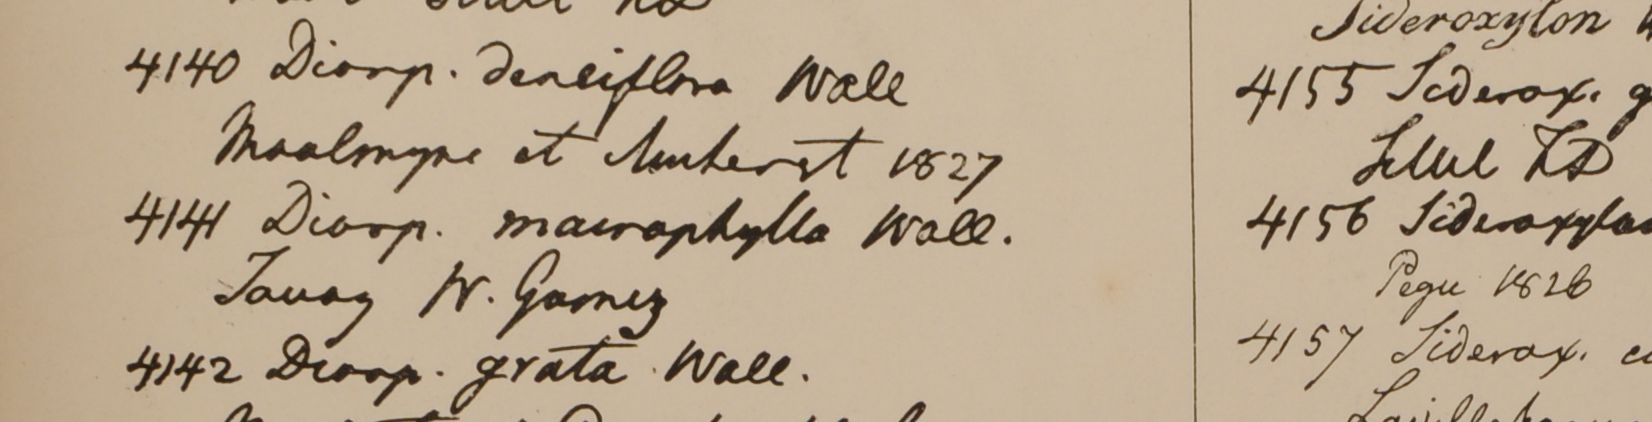 4140 Diosp. densiflora Wall
Moalmyne et Amherst 1827
4141 Diosp. macrophylla Wall.
Tavoy W. Gomez
4142 Diosp. grata Wall.
Sideroxylon
4155 Siderox. g
Silhet FD
4156 Sideroxylon
Pegu 1826
4157 Siderox.